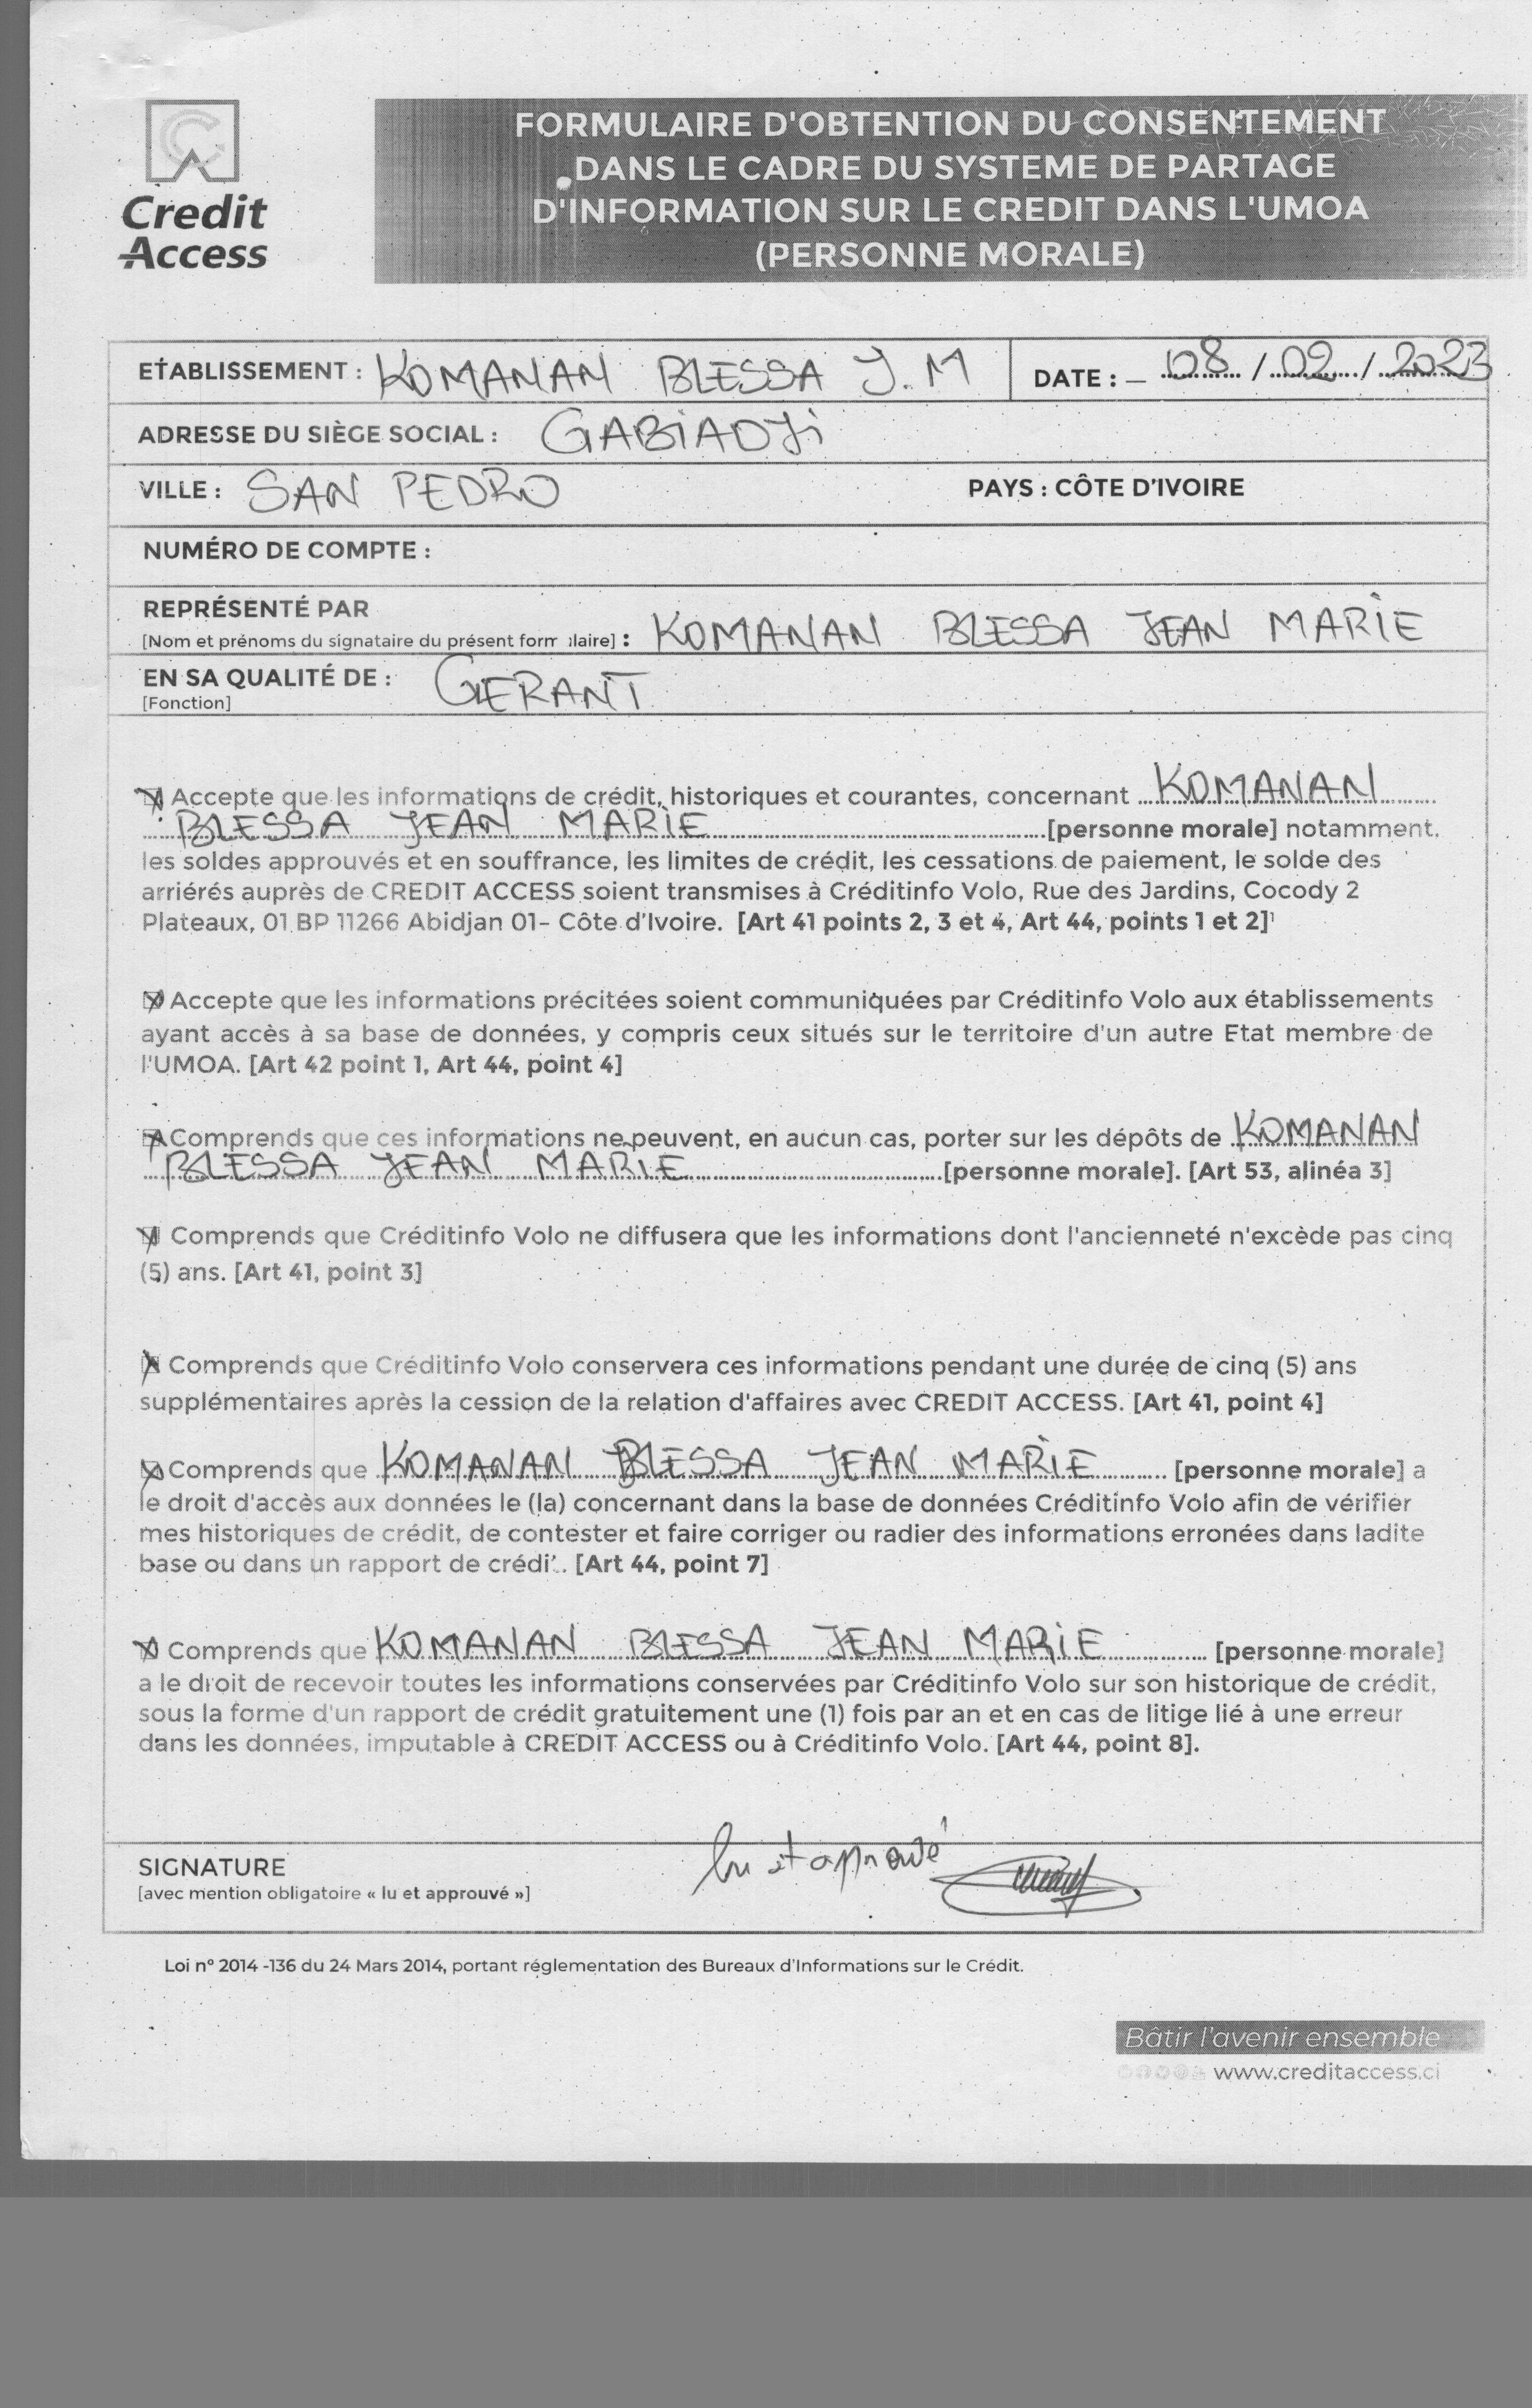 Credit
Access
FORMULAIRE D'OBTENTION DU CONSENTEMENT
DANS LE CADRE DU SYSTEME DE PARTAGE
D'INFORMATION SUR LE CREDIT DANS L'UMOA
(PERSONNE MORALE)
ETABLISSEMENT : KOMANAN BLESSA J.M DATE : 08 / 02 / 2023
ADRESSE DU SIÈGE SOCIAL : GABIADJi
VILLE : SAN PEDRO PAYS : CÔTE D'IVOIRE
NUMÉRO DE COMPTE :
REPRÉSENTÉ PAR
[Nom et prénoms du signataire du présent form laire] : KOMANAN BLESSA JEAN MARIE
EN SA QUALITÉ DE : GERANT
[Fonction]
Accepte que les informations de crédit, historiques et courantes, concernant KOMANAN
BLESSA JEAN MARIE [personne morale] notamment,
les soldes approuvés et en souffrance, les limites de crédit, les cessations de paiement, le solde des
arriérés auprès de CREDIT ACCESS soient transmises à Créditinfo Volo, Rue des Jardins, Cocody 2
Plateaux, 01 BP 11266 Abidjan 01- Côte d'Ivoire. [Art 41 points 2, 3 et 4, Art 44, points 1 et 2]¹
Accepte que les informations précitées soient communiquées par Créditinfo Volo aux établissements
ayant accès à sa base de données, y compris ceux situés sur le territoire d'un autre Etat membre de
l'UMOA. [Art 42 point 1, Art 44, point 4]
Comprends que ces informations ne peuvent, en aucun cas, porter sur les dépôts de KOMANAN
BLESSA JEAN MARIE [personne morale]. [Art 53, alinéa 3]
Comprends que Créditinfo Volo ne diffusera que les informations dont l'ancienneté n'excède pas cinq
(5) ans. [Art 41, point 3]
Comprends que Créditinfo Volo conservera ces informations pendant une durée de cinq (5) ans
supplémentaires après la cession de la relation d'affaires avec CREDIT ACCESS. [Art 41, point 4]
Comprends que KOMANAN BLESSA JEAN MARIE [personne morale] a
le droit d'accès aux données le (la) concernant dans la base de données Créditinfo Volo afin de vérifier
mes historiques de crédit, de contester et faire corriger ou radier des informations erronées dans ladite
base ou dans un rapport de crédi. [Art 44, point 7]
Comprends que KOMANAN BLESSA JEAN MARIE [personne morale]
a le droit de recevoir toutes les informations conservées par Créditinfo Volo sur son historique de crédit,
sous la forme d'un rapport de crédit gratuitement une (1) fois par an et en cas de litige lié à une erreur
dans les données, imputable à CREDIT ACCESS ou à Créditinfo Volo. [Art 44, point 8].
SIGNATURE lu et approuvé
[avec mention obligatoire « lu et approuvé »]
Loi n° 2014 -136 du 24 Mars 2014, portant réglementation des Bureaux d'Informations sur le Crédit.
Bâtir l'avenir ensemble
www.creditaccess.ci